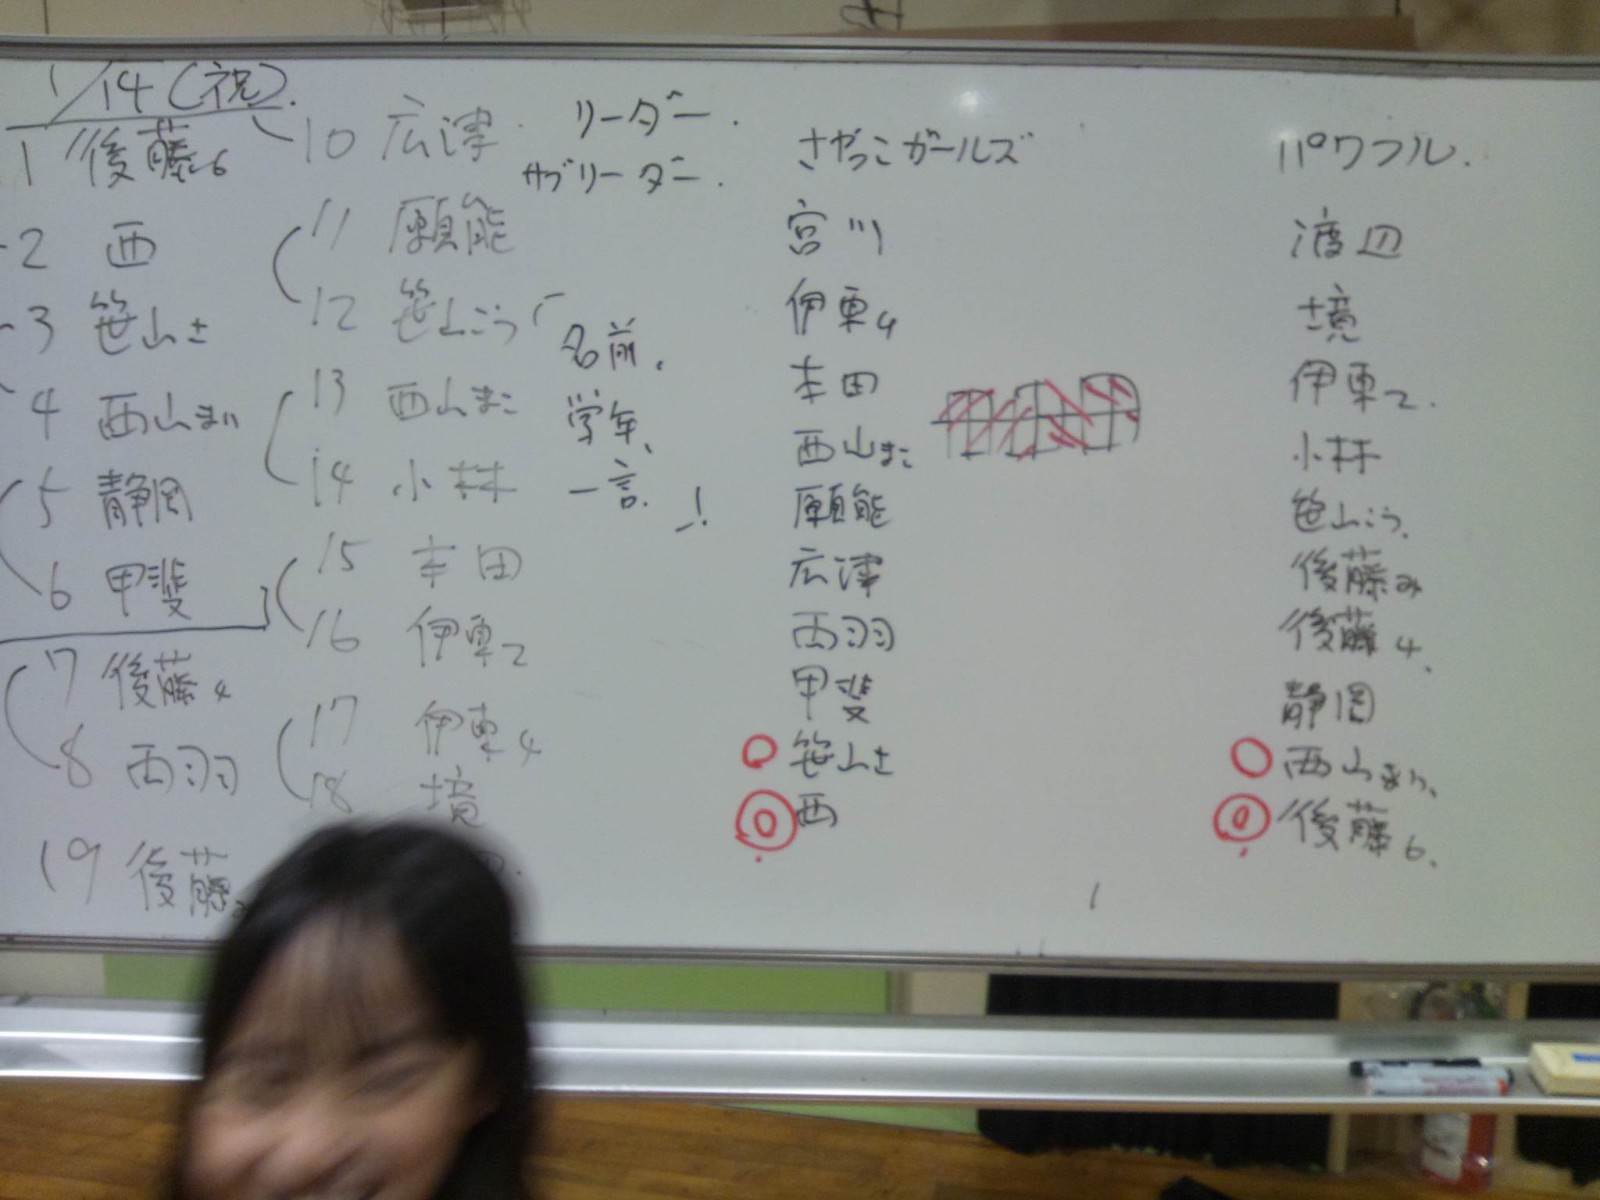 1/14(祝)
1 後藤6
2 西
3 笹山さ
4 西山まい
5 静岡
6 甲斐
7 後藤4
8 西羽
19 後藤み
10 広津
11 願能
12 笹山こう
13 西山まこ
14 小林
15 本田
16 伊東て
17 伊東4
18 境
リーダー.
サブリーダー.
名前、
学年、
一言.
さやっこガールズ
宮川
伊東4
本田
西山まこ
願能
広津
西羽
甲斐
笹山さ
西
パワフル.
渡辺
境
伊東て.
小林
笹山こう.
後藤み
後藤4.
静岡
西山まい、
後藤6.